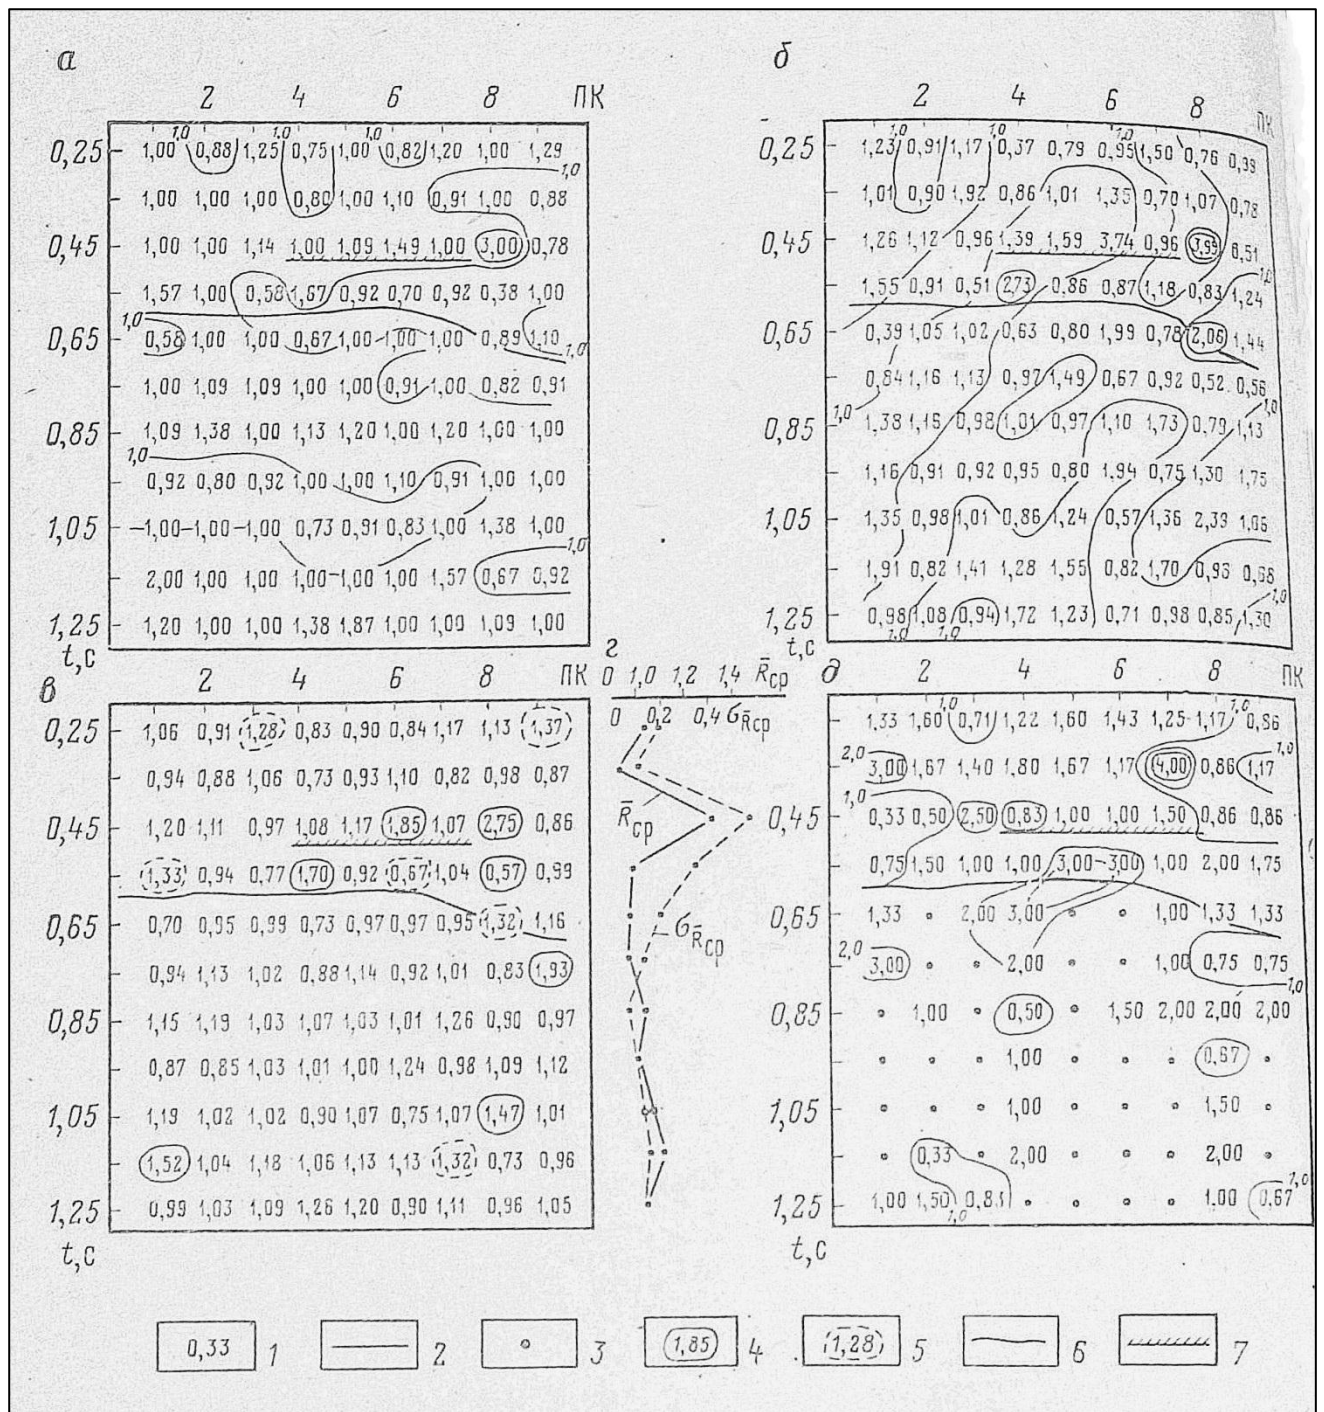 а
2 4 6 8 ПК
1,0 1,0 1,0
0,25 1,00 0,88 1,25 0,75 1,00 0,82 1,20 1,00 1,29
1,0
1,00 1,00 1,00 0,80 1,00 1,10 0,91 1,00 0,88
0,45 1,00 1,00 1,14 1,00 1,09 1,49 1,00 3,00 0,78
1,57 1,00 0,58 1,67 0,92 0,70 0,92 0,38 1,00
1,0
0,65 0,58 1,00 1,00 0,67 1,00 1,00 1,00 0,89 1,10
1,0
1,00 1,09 1,09 1,00 1,00 0,91 1,00 0,82 0,91
0,85 1,09 1,38 1,00 1,13 1,20 1,00 1,20 1,00 1,00
1,0
0,92 0,80 0,92 1,00 1,00 1,10 0,91 1,00 1,00
1,05 1,00 1,00 1,00 0,73 0,91 0,83 1,00 1,38 1,00
1,0
2,00 1,00 1,00 1,00 1,00 1,00 1,57 0,67 0,92
1,25 1,20 1,00 1,00 1,38 1,87 1,00 1,00 1,09 1,00
t,с
б
2 4 6 8 ПК
1,0 1,0 1,0
0,25 1,23 0,91 1,17 0,37 0,79 0,95 1,50 0,76 0,99
1,01 0,90 1,92 0,86 1,01 1,35 0,70 1,07 0,78
0,45 1,26 1,12 0,96 1,39 1,59 3,74 0,96 3,99 0,51
1,0
1,55 0,91 0,51 2,73 0,86 0,87 1,18 0,83 1,24
0,65 0,39 1,05 1,02 0,63 0,80 1,99 0,78 2,06 1,44
0,84 1,16 1,13 0,97 1,49 0,67 0,92 0,52 0,56
1,0 1,0
0,85 1,38 1,15 0,98 1,01 0,97 1,10 1,73 0,79 1,13
1,16 0,91 0,92 0,95 0,80 1,94 0,75 1,30 1,75
1,05 1,35 0,98 1,01 0,86 1,24 0,57 1,36 2,39 1,06
1,0
1,91 0,82 1,41 1,28 1,55 0,82 1,70 0,93 0,68
1,0
1,25 0,98 1,08 0,94 1,72 1,23 0,71 0,98 0,85 1,30
1,0 1,0
t,с
в
2 4 6 8 ПК
0,25 1,06 0,91 1,28 0,83 0,90 0,84 1,17 1,13 1,37
0,94 0,88 1,06 0,73 0,93 1,10 0,82 0,98 0,87
0,45 1,20 1,11 0,97 1,08 1,17 1,85 1,07 2,75 0,86
1,33 0,94 0,77 1,70 0,92 0,67 1,04 0,57 0,99
0,65 0,70 0,95 0,99 0,73 0,97 0,97 0,95 1,32 1,16
0,94 1,13 1,02 0,88 1,14 0,92 1,01 0,83 1,93
0,85 1,15 1,19 1,03 1,07 1,03 1,01 1,26 0,90 0,97
0,87 0,85 1,03 1,01 1,00 1,24 0,98 1,09 1,12
1,05 1,19 1,02 1,02 0,90 1,07 0,75 1,07 1,47 1,01
1,52 1,04 1,18 1,06 1,13 1,13 1,32 0,73 0,96
1,25 0,99 1,03 1,09 1,26 1,20 0,90 1,11 0,96 1,05
t,с
г
0 1,0 1,2 1,4 R̄ср
0 0,2 0,4 σR̄ср
R̄ср
σR̄ср
д
2 4 6 8 ПК
1,0 1,0
1,33 1,60 0,71 1,22 1,60 1,43 1,25 1,17 0,86
2,0 1,0
3,00 1,67 1,40 1,80 1,67 1,17 4,00 0,86 1,17
1,0
0,45 0,33 0,50 2,50 0,83 1,00 1,00 1,50 0,86 0,86
0,75 1,50 1,00 1,00 3,00 3,00 1,00 2,00 1,75
0,65 1,33 2,00 3,00 1,00 1,33 1,33
2,0
3,00 2,00 1,00 0,75 0,75
1,0
0,85 1,00 0,50 1,50 2,00 2,00 2,00
1,00 0,67
1,05 1,00 1,50
0,33 2,00 2,00
1,0
1,25 1,00 1,50 1,00 0,67
1,0
t,с
0,33 1
2
3
1,85 4
1,28 5
6
7